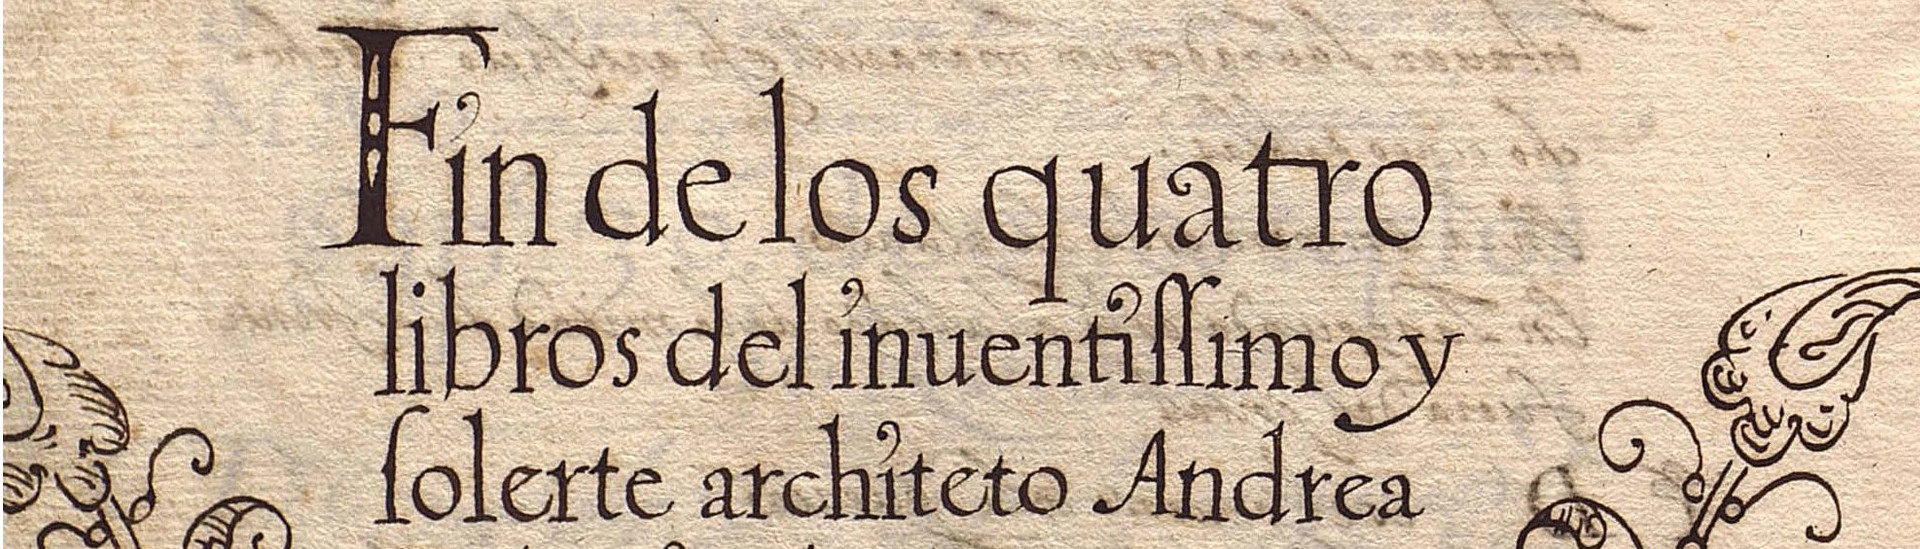 Fin de los quatro
libros del inuentiſſimo y
ſolerte architeto Andrea